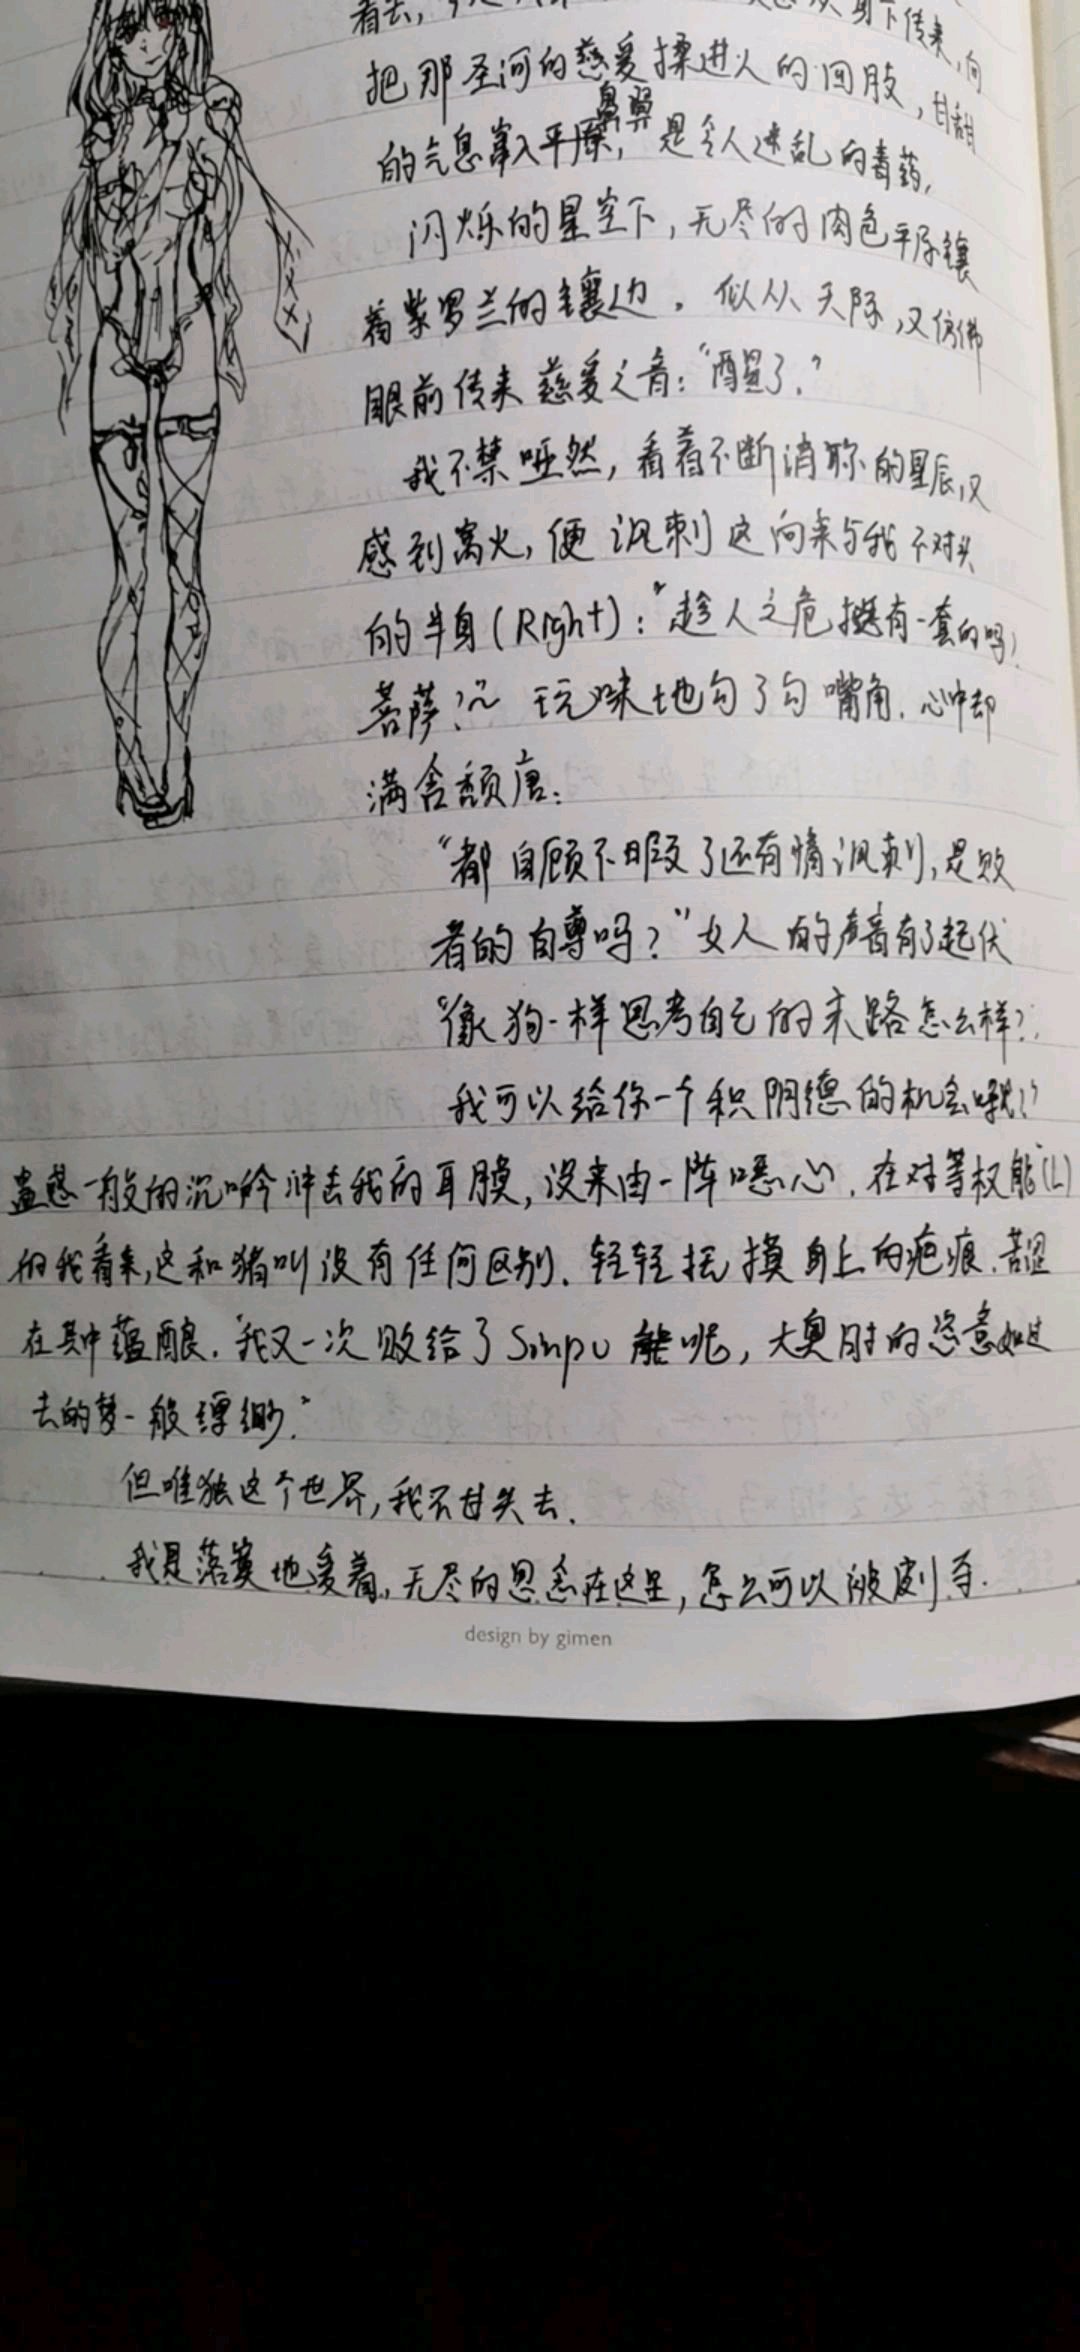 看去，
身下传来，向
把那圣河的慈爱揉进人的四肢，甘甜
的气息窜入平原，鼻翼是令人迷乱的毒药，
闪烁的星空下，无尽的肉色平原镶
着紫罗兰的镶边。似从天际，又仿佛
眼前传来慈爱之音：“醒了？
我不禁哑然，看着不断消弥的星辰，又
感到窝火，便讽刺这向来与我不对头
的半身（Right）：“趁人之危挺有一套的吗，
菩萨？”玩味地勾了勾嘴角，心中却
满含颓唐：
“都自顾不暇了还有情讽刺，是败
者的自尊吗？”女人的声音有了起伏
“像狗一样思考自己的末路怎么样？
我可以给你一个积阴德的机会哦？
蛊惑一般的沉吟冲去我的耳膜，没来由一阵恶心，在对等权能（L）
的我看来，这和猪叫没有任何区别，轻轻抚摸身上的疤痕，苦涩
在其中蕴酿，“我又一次败给了 呢，大奥时的恣意如过
去的梦一般缥缈。”
但唯独这个世界，我不甘失去。
我是落寞地爱着，无尽的思念在这里，怎么可以被剥夺.
design by gimen